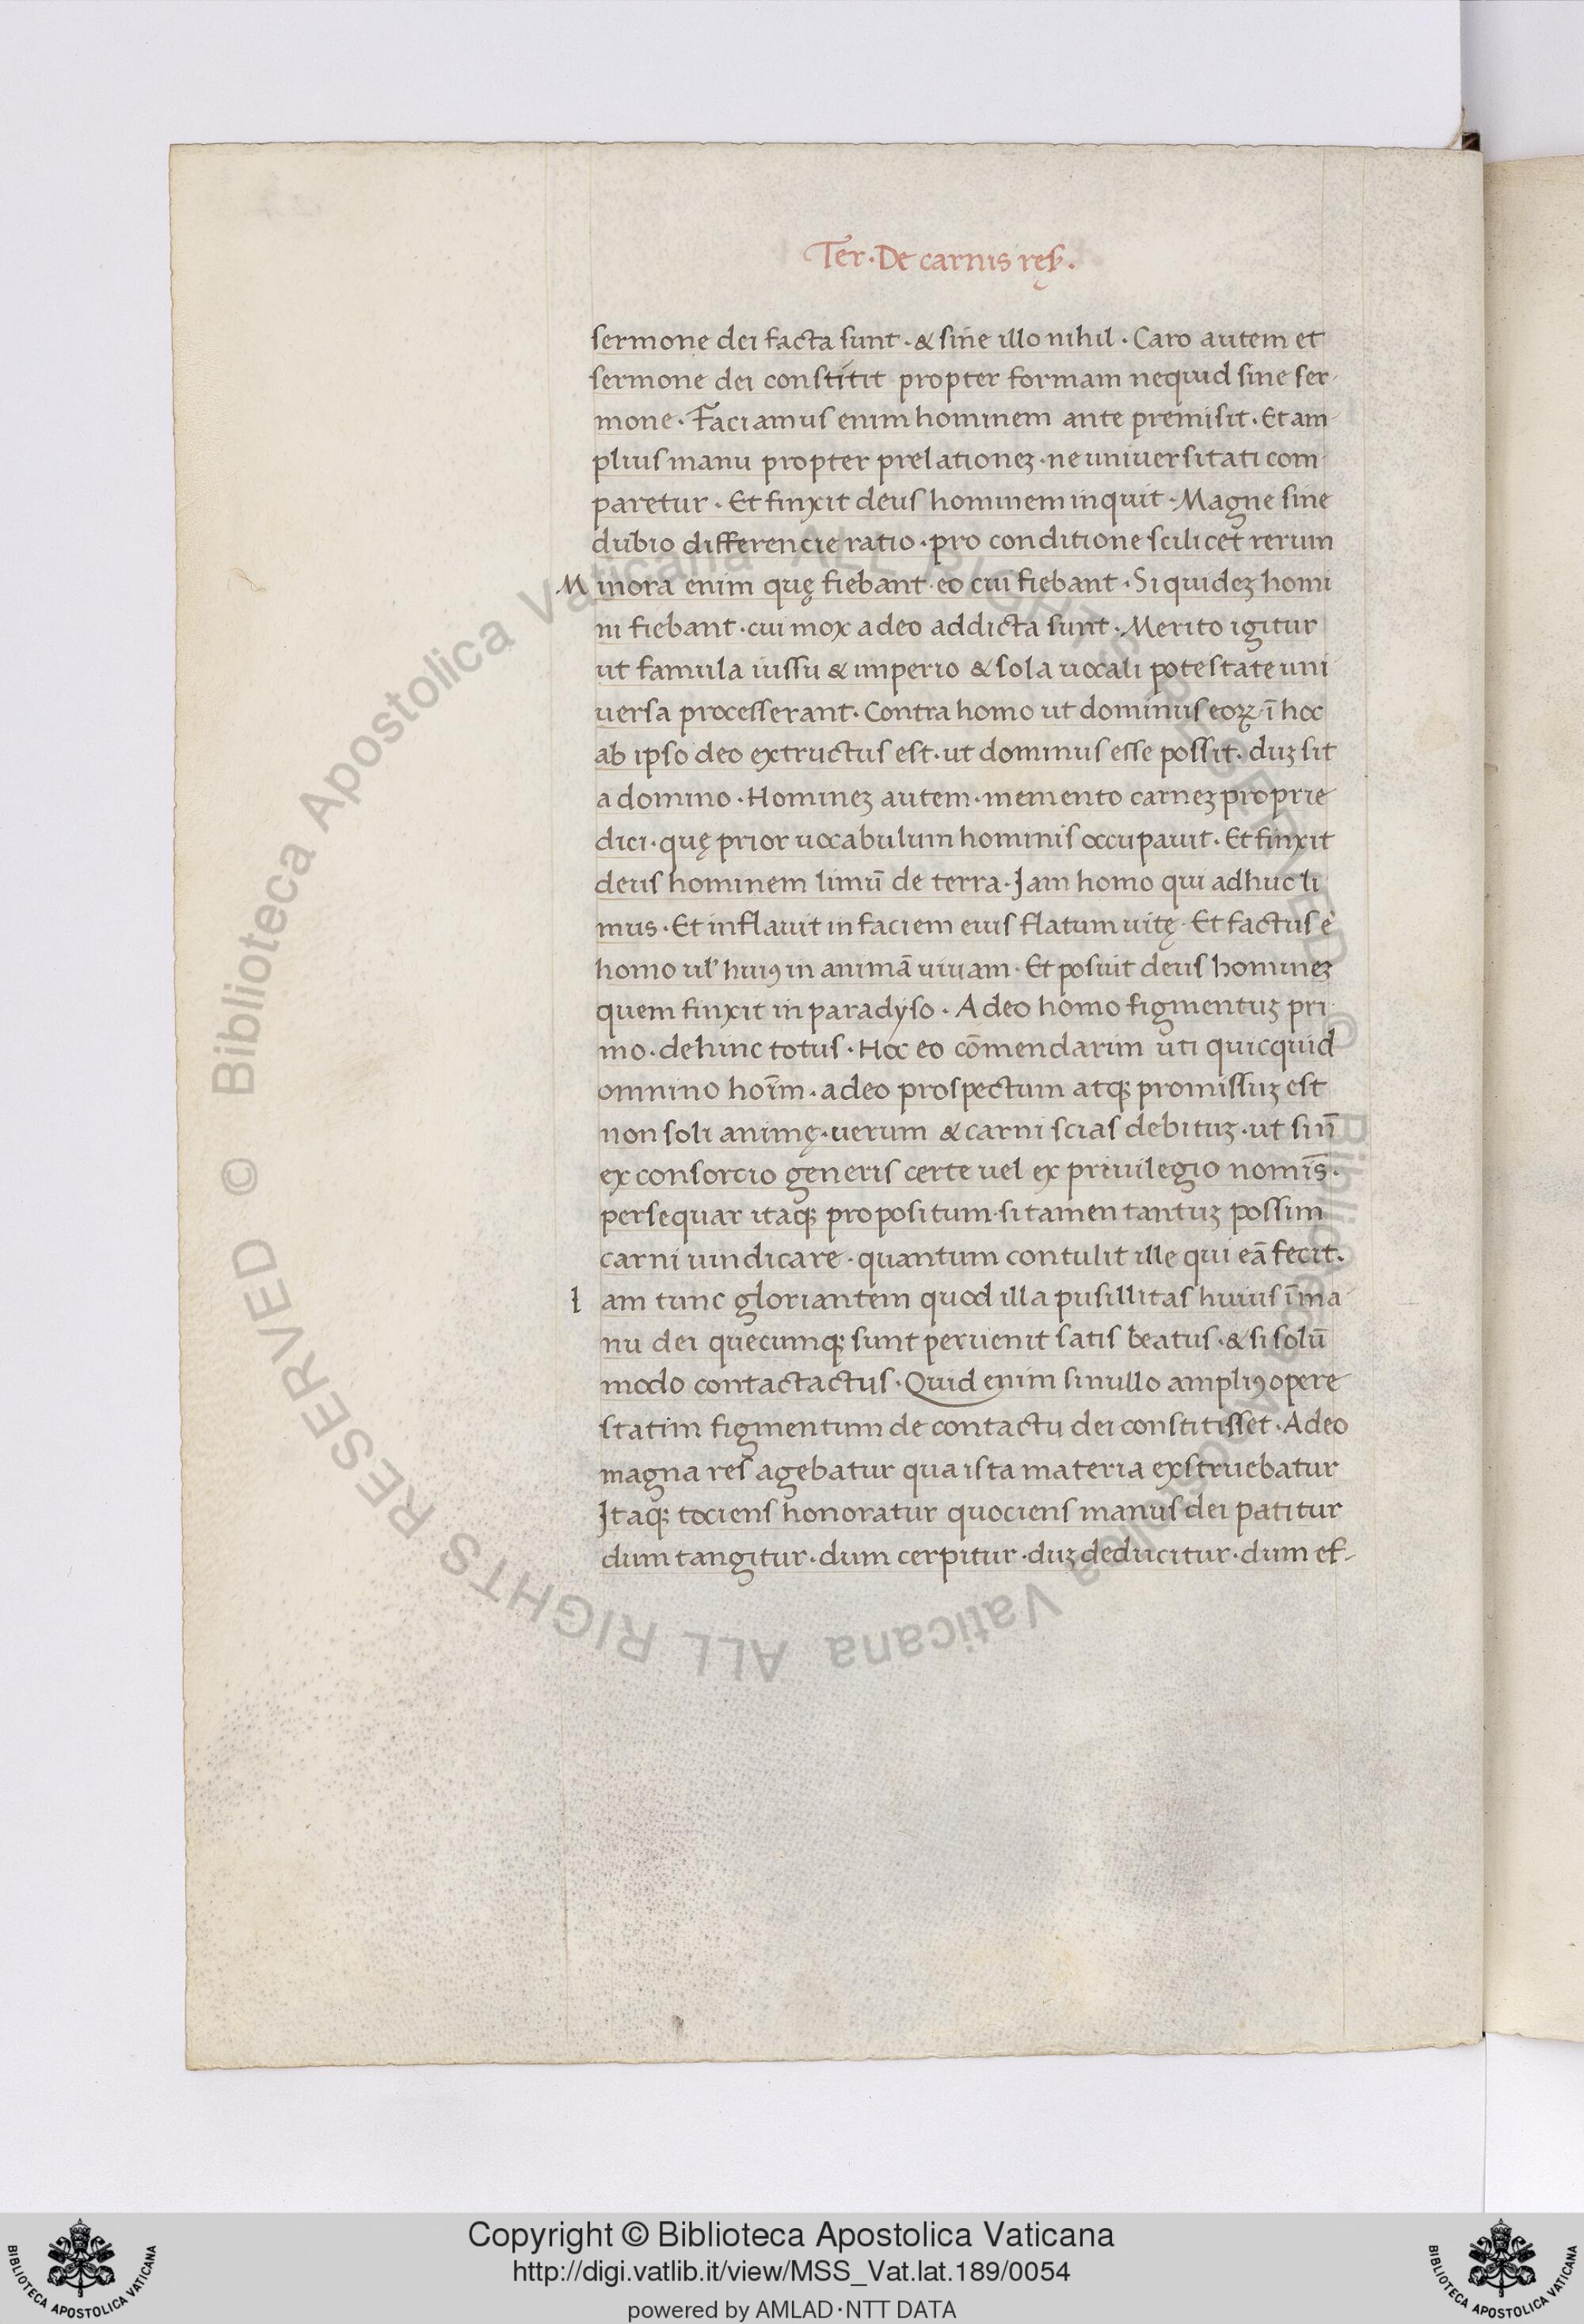 Ter · De carnis reſ̨ .
sermone dei facta sunt · & sine illo nihil · Caro autem et
sermone dei constitit propter formam nequid sine ser-
mone · Faciamus enim hominem ante premisit · Et am-
plius manu propter prelationeꝫ · ne universitati com-
paretur · Et finxit deus hominem inquit · Magne sine
dubio differencie ratio · pro conditione scilicet rerum
Minora enim quę fiebant · eo cui fiebant · Si quideꝫ homi
ni fiebant · cui mox a deo addicta sunt · Merito igitur
ut famula iussu & imperio & sola uocali potestate uni
uersa processerant · Contra homo ut dominus eoꝝ · ī hoc
ab ipso deo extructus est · ut dominus esse possit · duꝫ sit
a domino · Homineꝫ autem · memento carneꝫ proprie
dici · quę prior uocabulum hominis occupauit · Et finxit
deus hominem limū de terra · Jam homo qui adhuc li
mus · Et inflauit in faciem eius flatum uitę · Et factus ē
homo huiꝰ in animā uiuam · Et posuit deus homineꝫ
quem finxit in paradyso · Adeo homo figmentuꝫ pri
mo · dehinc totus · Hoc eo cōmendarim uti quicquid
omnino hoīm · a deo prospectum atqꝫ promissuꝫ est
non soli animę · uerum & carni scias debituꝫ · ut sin̄
ex consorcio generis certe uel ex priuilegio nomīs ·
persequar itaqꝫ propositum · si tamen tantuꝫ possim
carni uindicare · quantum contulit ille qui eā fecit ·
Iam tunc gloriantem quod illa pusillitas huius ī ma
nu dei quecumqꝫ sunt peruenit satis beatus · & si solū
modo contactactus · Quid enim si nullo ampliꝰ opere
statim figmentum de contactu dei constitisset · Adeo
magna res agebatur qua ista materia exstruebatur
Itaqꝫ tociens honoratur quociens manus dei patitur
dum tangitur · dum cerpitur · duꝫ deducitur · dum ef-
© Biblioteca Apostolica Vaticana ALL RIGHTS RESERVED © Biblioteca Apostolica Vaticana ALL RIGHTS RESERVED
Copyright © Biblioteca Apostolica Vaticana
http://digi.vatlib.it/view/MSS_Vat.lat.189/0054
powered by AMLAD·NTT DATA
BIBLIOTECA APOSTOLICA VATICANA
BIBLIOTECA APOSTOLICA VATICANA